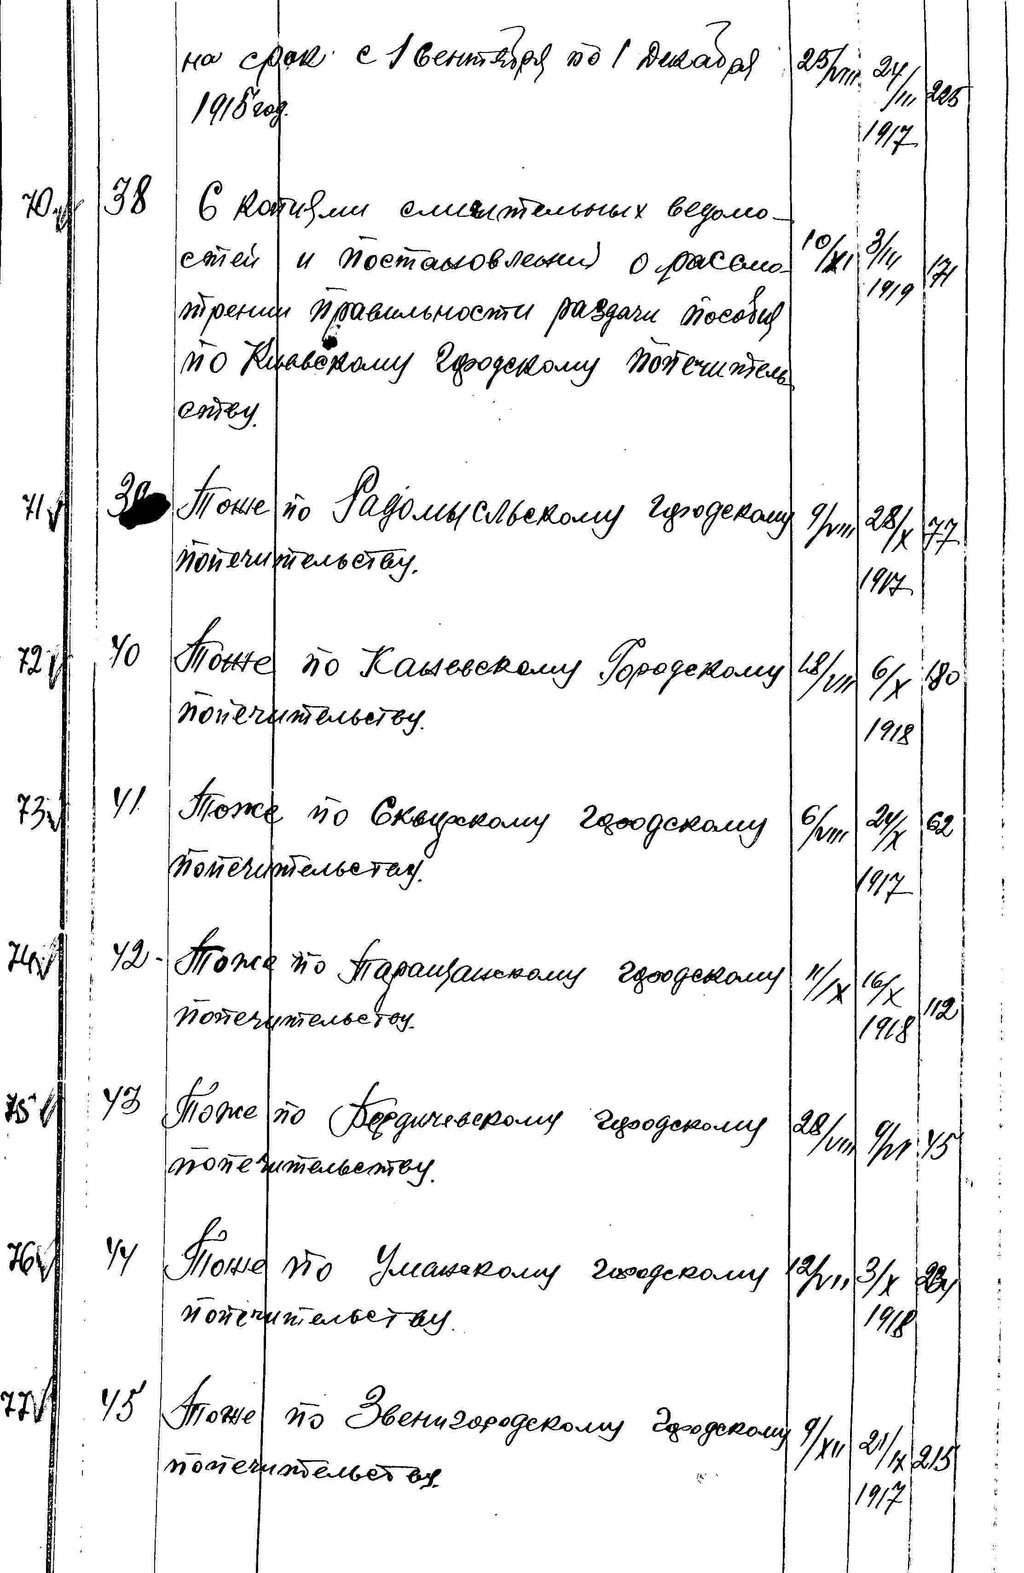 на срок с 1 Сентября по 1 Декабря 25/VIII 24/III 225
1915 год. 1917
70 38 С копиями сличительных ведомо-
стей и постановлений о рассмо- 10/XI 3/IV 171
трении правильности раздачи пособия 1919
по Киевскому Городскому попечитель
ству.
71 39 Тоже по Радомысльскому городскому 9/VIII 28/X 77
попечительству. 1917
72 40 Тоже по Каневскому Городскому 18/VIII 6/X 180
попечительству. 1918
73 41 Тоже по Сквирскому городскому 6/VIII 24/X 62
попечительству. 1917
74 42 - Тоже по Таращанскому городскому 11/IX 16/X 112
попечительству. 1918
75 43 Тоже по Бердичевскому городскому 28/VIII 9/VI 45
попечительству.
76 44 Тоже по Уманскому городскому 12/VII 3/X
попечительству. 1918
77 45 Тоже по Звенигородскому городскому 9/XII 21/IX 215
попечительству. 1917